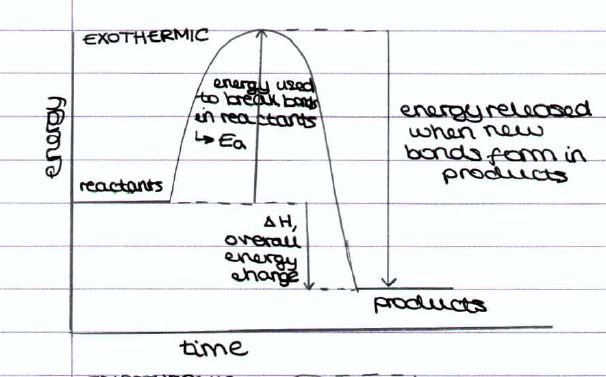 EXOTHERMIC
energy
energy used
to break bonds
in reactants
↳ Ea
energy released
when new
bonds form in
products
reactants
ΔH,
overall
energy
change
products
time